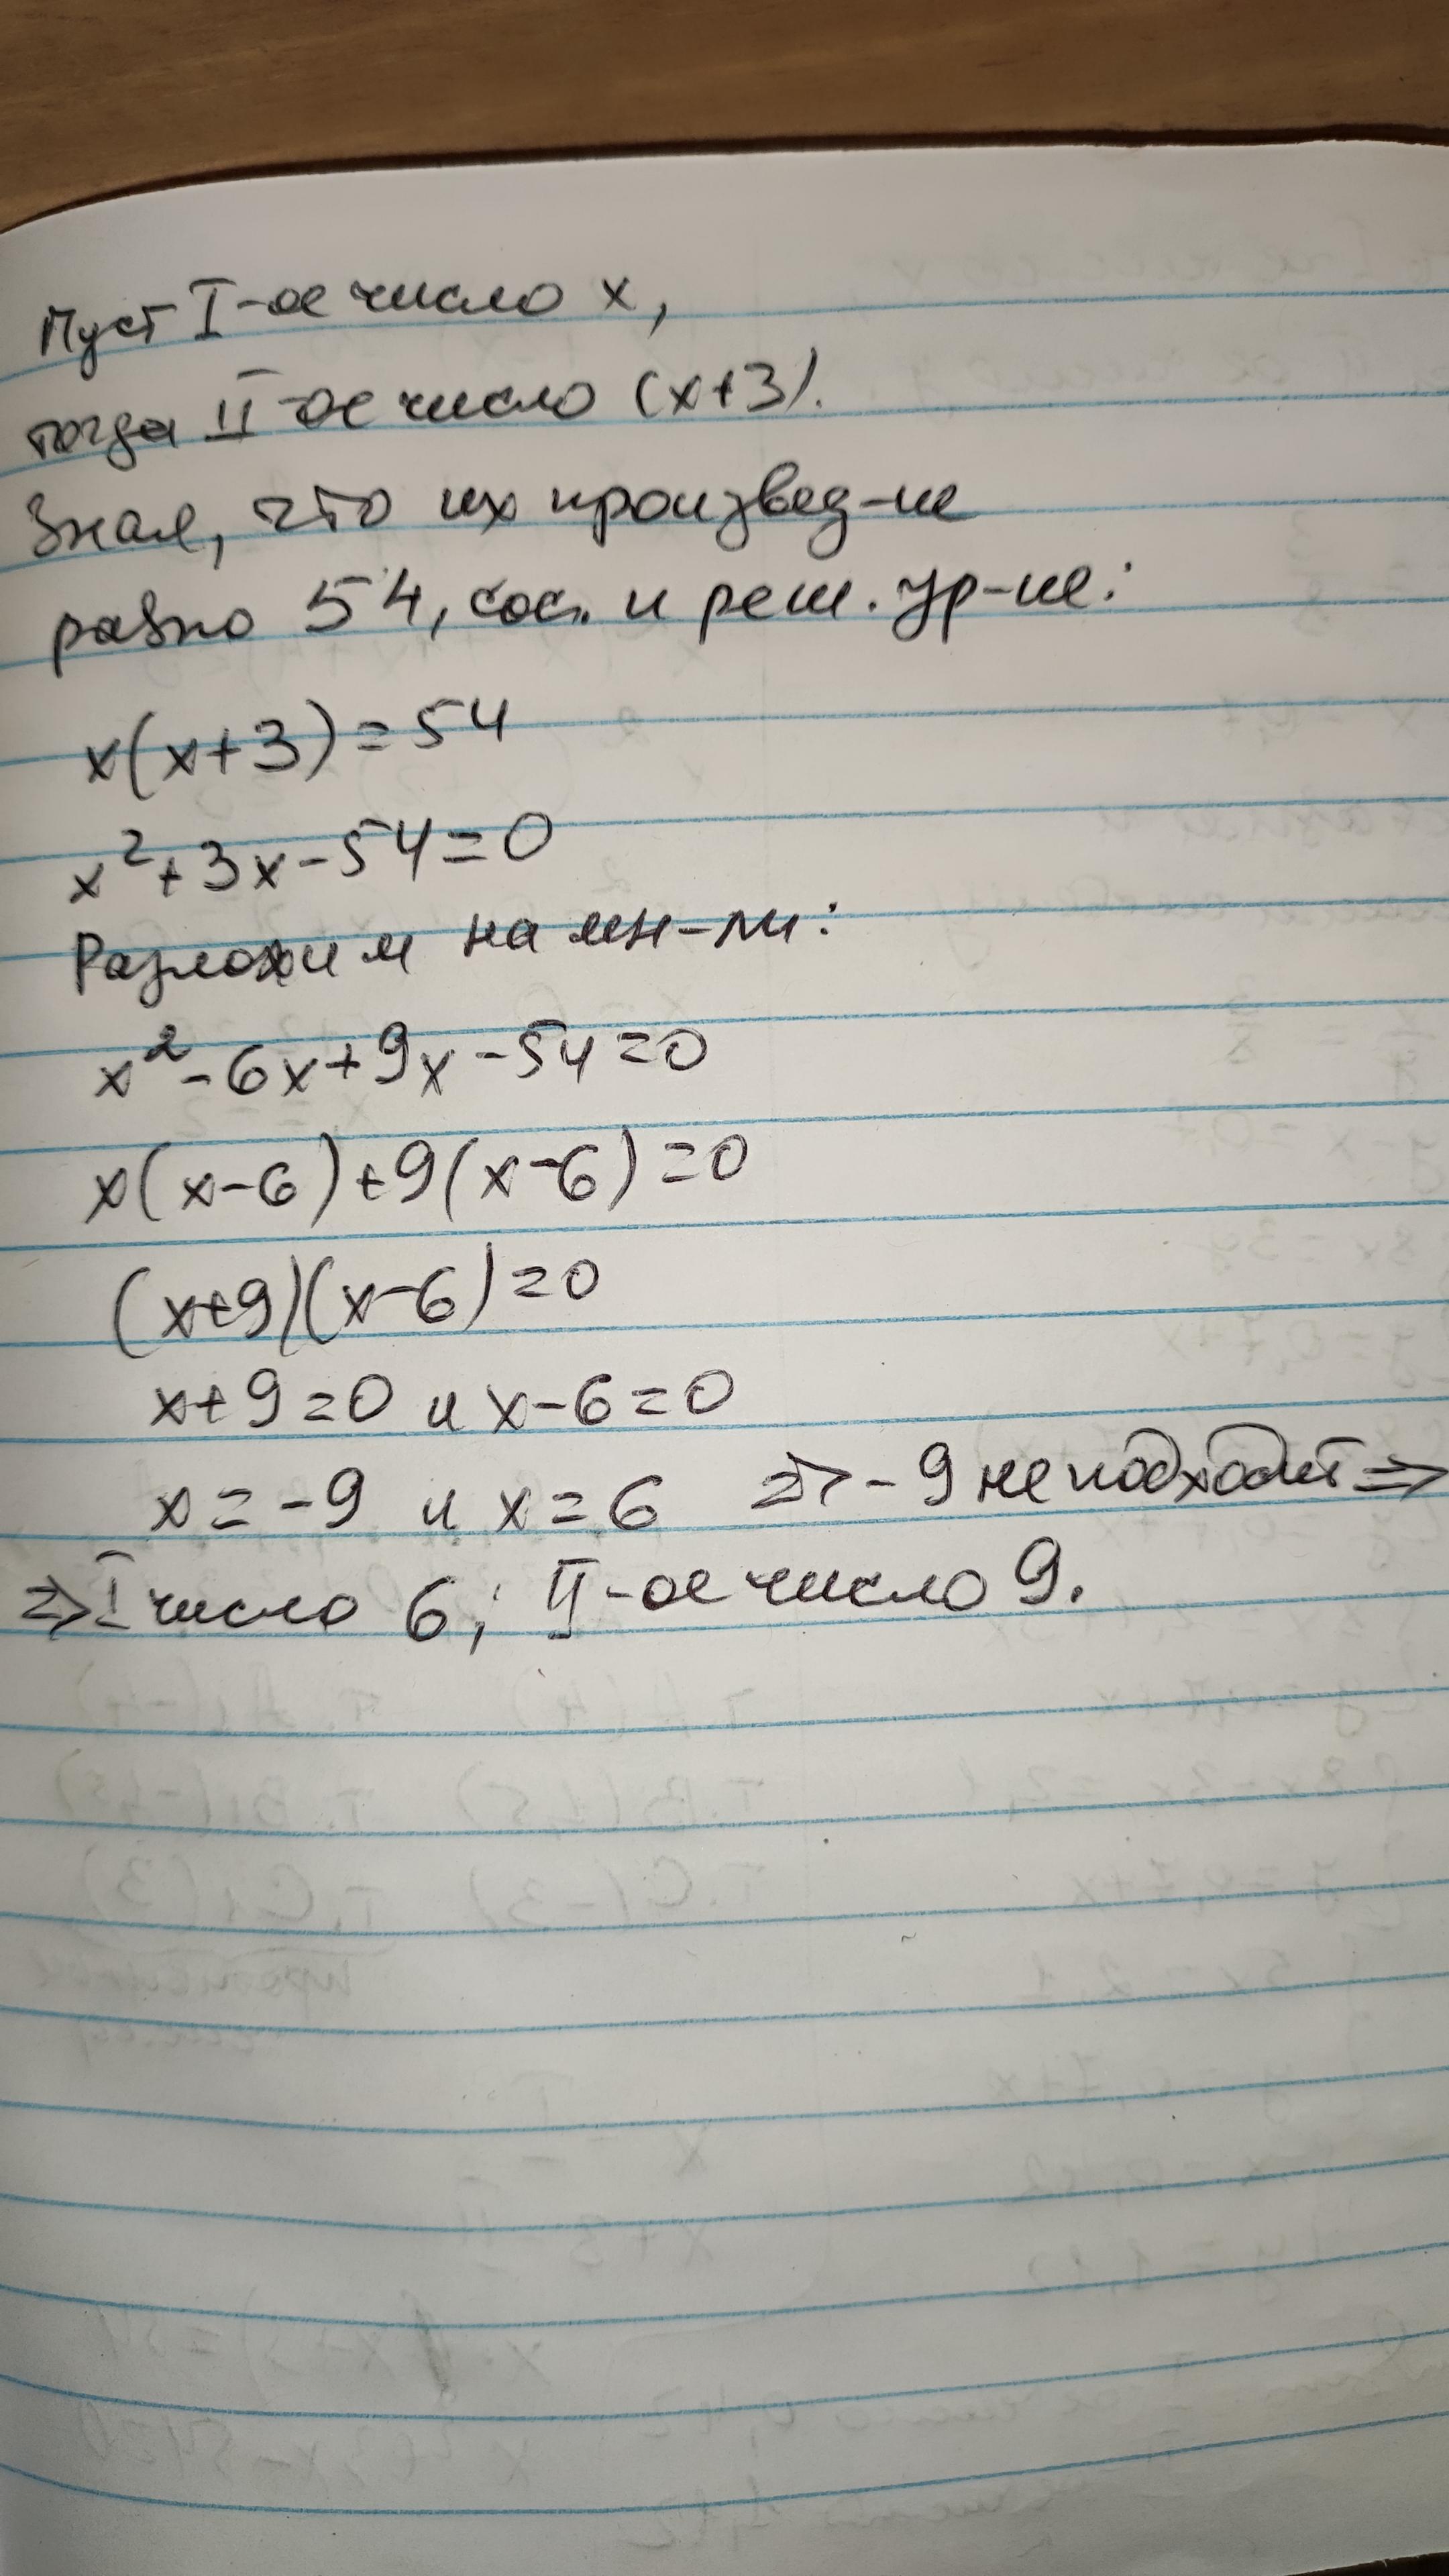 Пуст I-ое число x,
тогда II-ое число (x+3).
Зная, что их произвед-ие
равно 54, сос. и реш. ур-ие:
x(x+3)=54
x²+3x-54=0
Разложим на мн-ли:
x²-6x+9x-54=0
x(x-6)+9(x-6)=0
(x+9)(x-6)=0
x+9=0 и x-6=0
x=-9 и x=6 => -9 не подходит =>
=> I число 6; II-ое число 9.